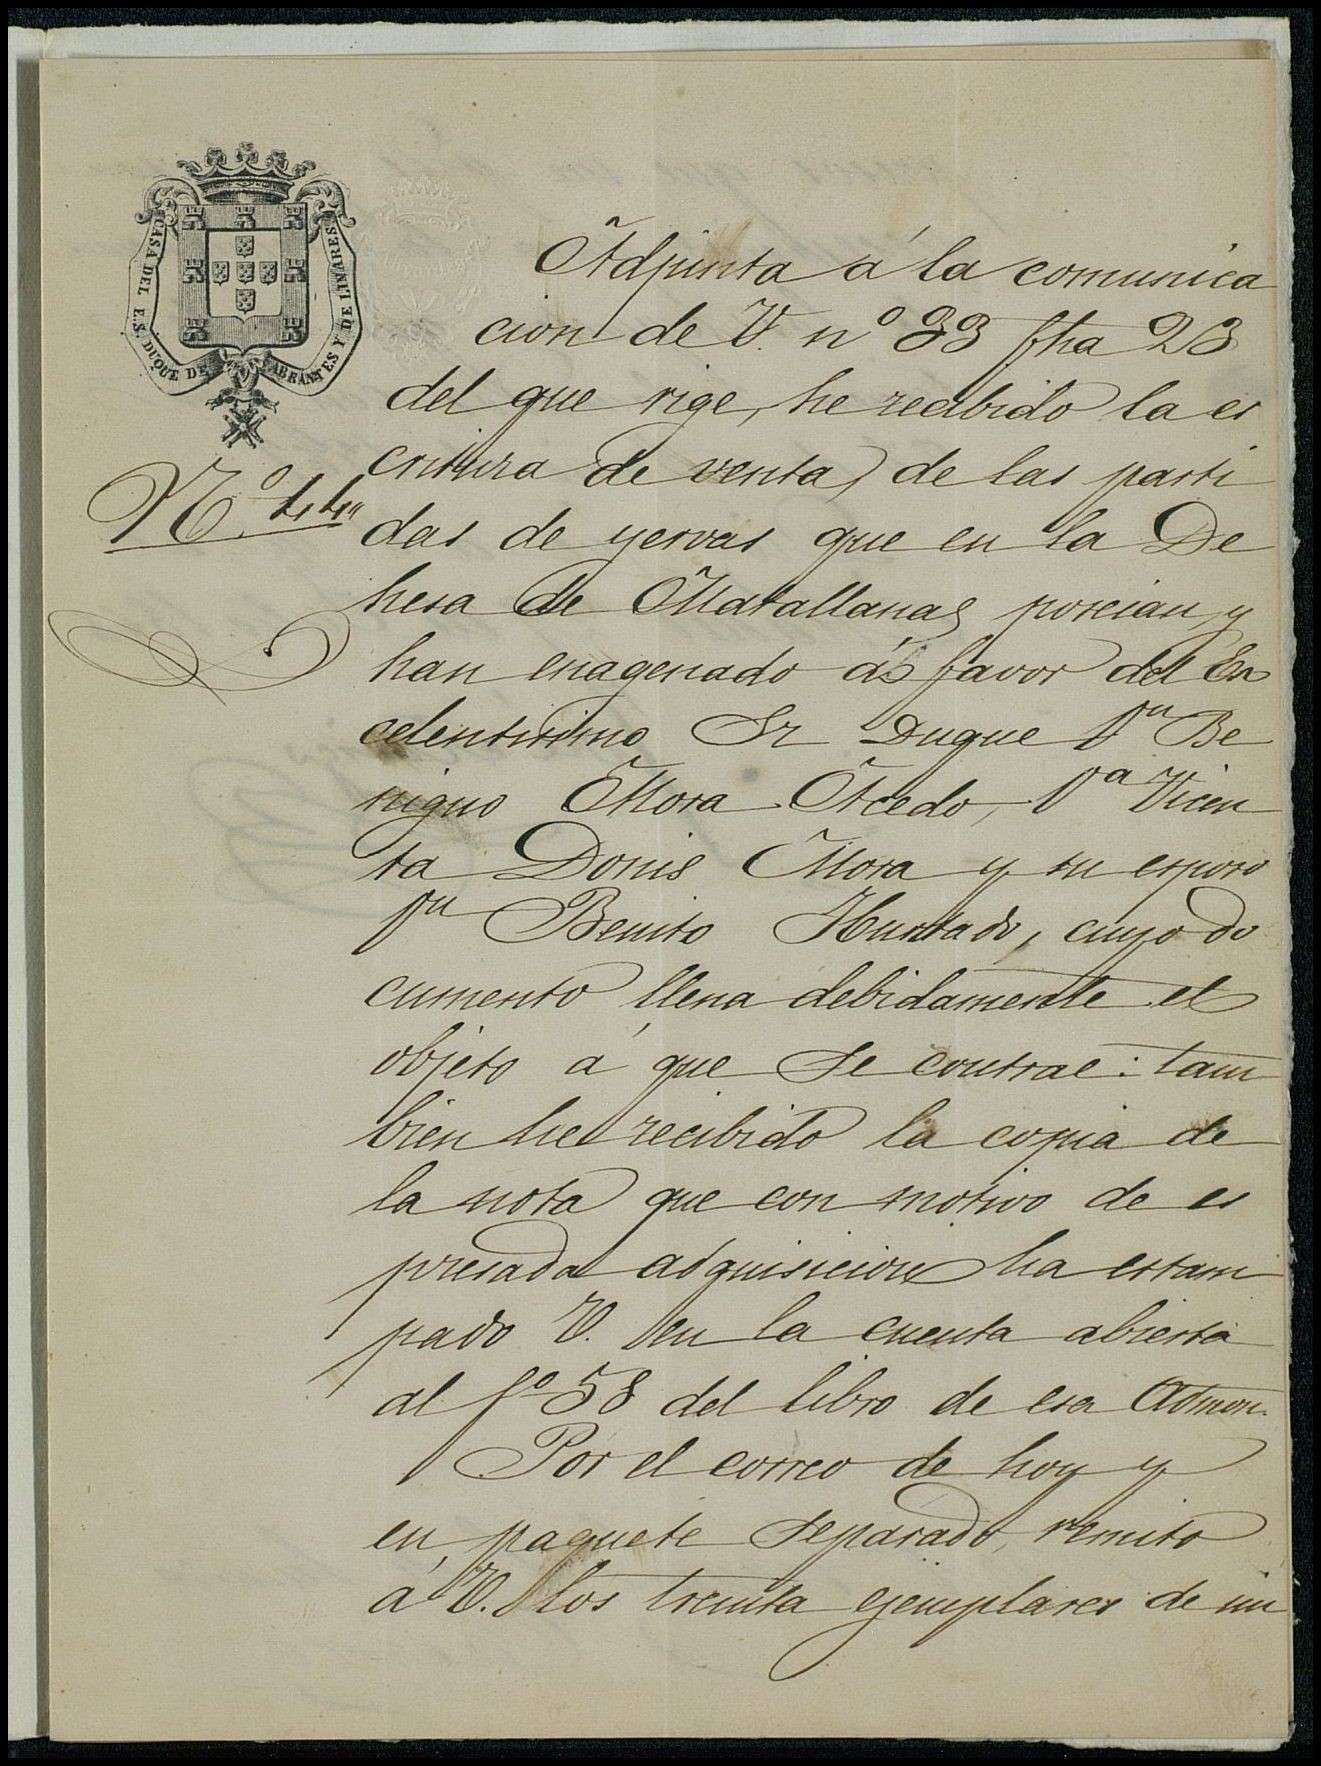 CASA DEL E.S. DUQUE DE ABRANTES Y DE LINARES
N.º 44"
Adjunta á la comunica
cion de V. nº 33 fha 23
del que rige, he recibido la es
critura de venta, de las parti
das de yervas que en la De
hesa de Matallanas poseian y
han enagenado á favor del Ex
celentisimo Sr Duque Dn Be
nigno Mora Acedo, Da Vicen
ta Donis Mora y su esposo
Dn Benito Hurtado, cuyo do
cumento llena debidamente el
objeto á que se contrae: tam
bien he recibido la copia de
la nota que con motivo de es
presada adquisicion ha estam
pado V. en la cuenta abierta
al fº 58 del libro de esa Admon.
Por el correo de hoy y
en paquete separado, remito
á V. los treinta ejemplares de im